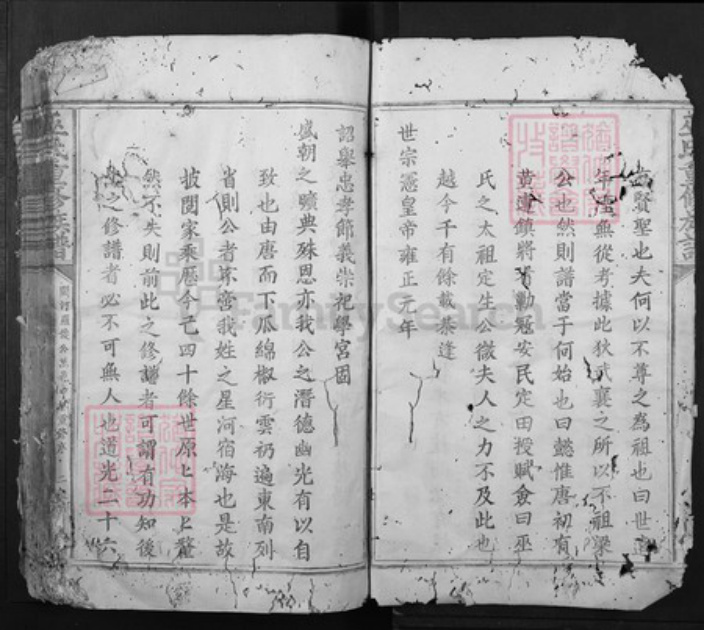 古賢聖也夫何以不尊之為祖也曰世遠
年湮無從考據此狄武襄之所以不祖梁
公也然則譜當于何始也曰懿惟唐初有
黃連鎮將有勳冠安民定田授賦僉曰巫
氏之太祖定生公微夫人之力不及此也
越今千有餘載恭逢
世宗憲皇帝雍正元年
詔舉忠孝節義崇祀學宮固
盛朝之曠典殊恩亦我公之潛德幽光有以自
致也由唐而下瓜綿椒衍雲礽遍東南列
省則公者洵我姓之星河宿海也是故
披閱家乘歷今已四十餘世原上本上釐
然不失則前此之修譜者可謂有功知後
此之修譜者必不可無人也道光二十六
巫氏重修族譜
巫氏重修族譜
FamilySearch